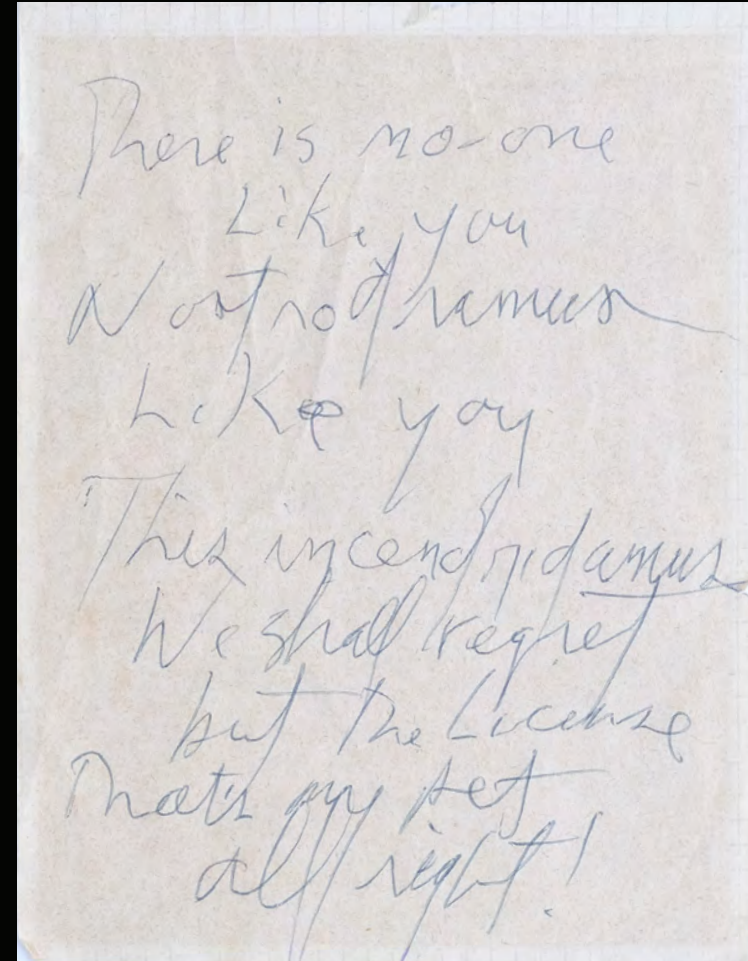 There is no-one
Like you
Nostrodramus
Like you
This incendridamus
We shall regret
but the License
That's my
all right!